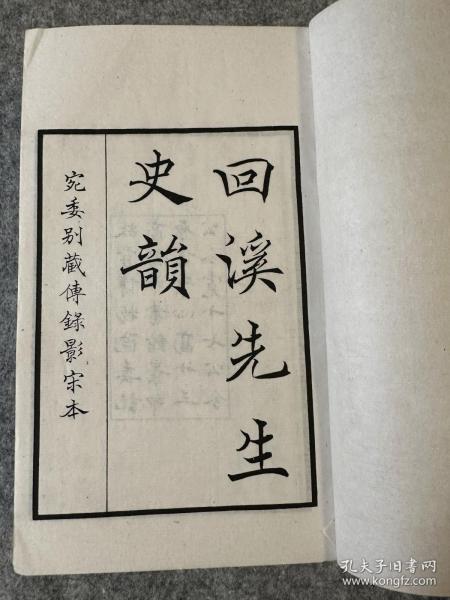 回溪先生
史韻
宛委別藏傳錄影宋本
孔夫子旧书网
www.kongfz.com